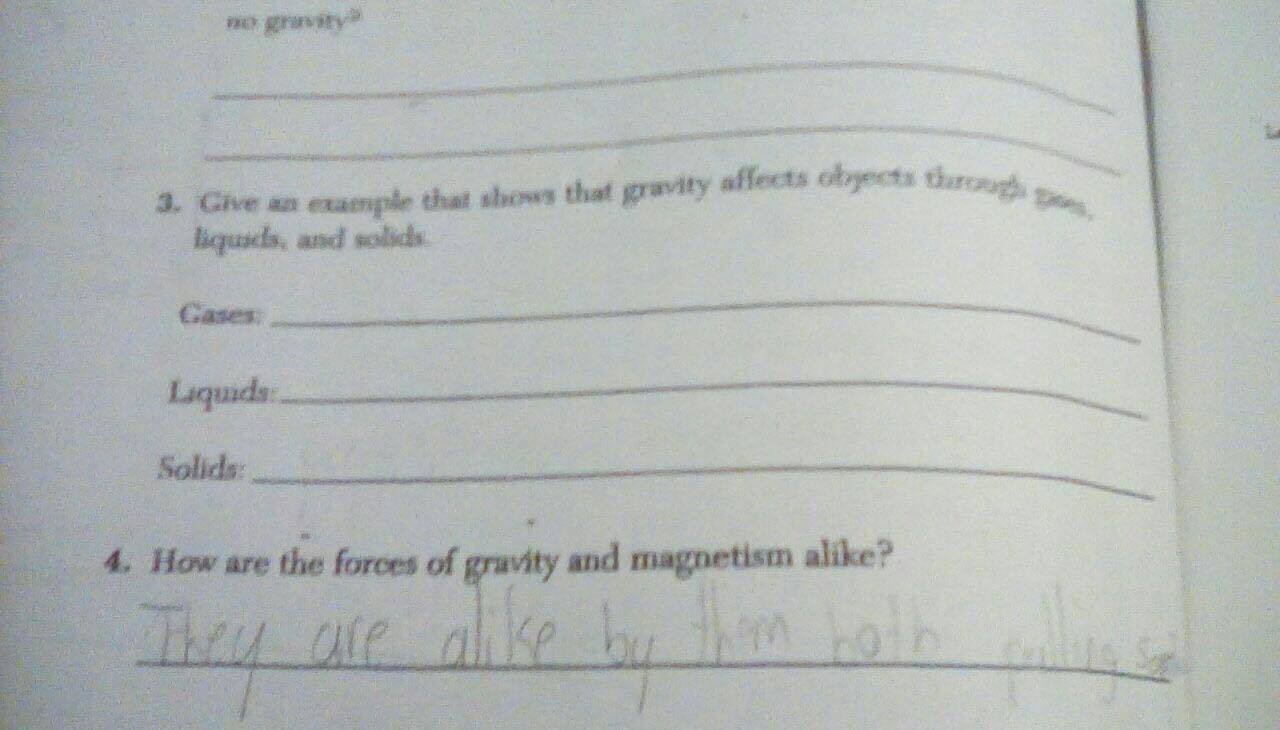 no gravity?
3. Give an example that shows that gravity affects objects through gases,
liquids, and solids.
Gases:
Liquids:
Solids:
4. How are the forces of gravity and magnetism alike?
They are alike by them both pulling